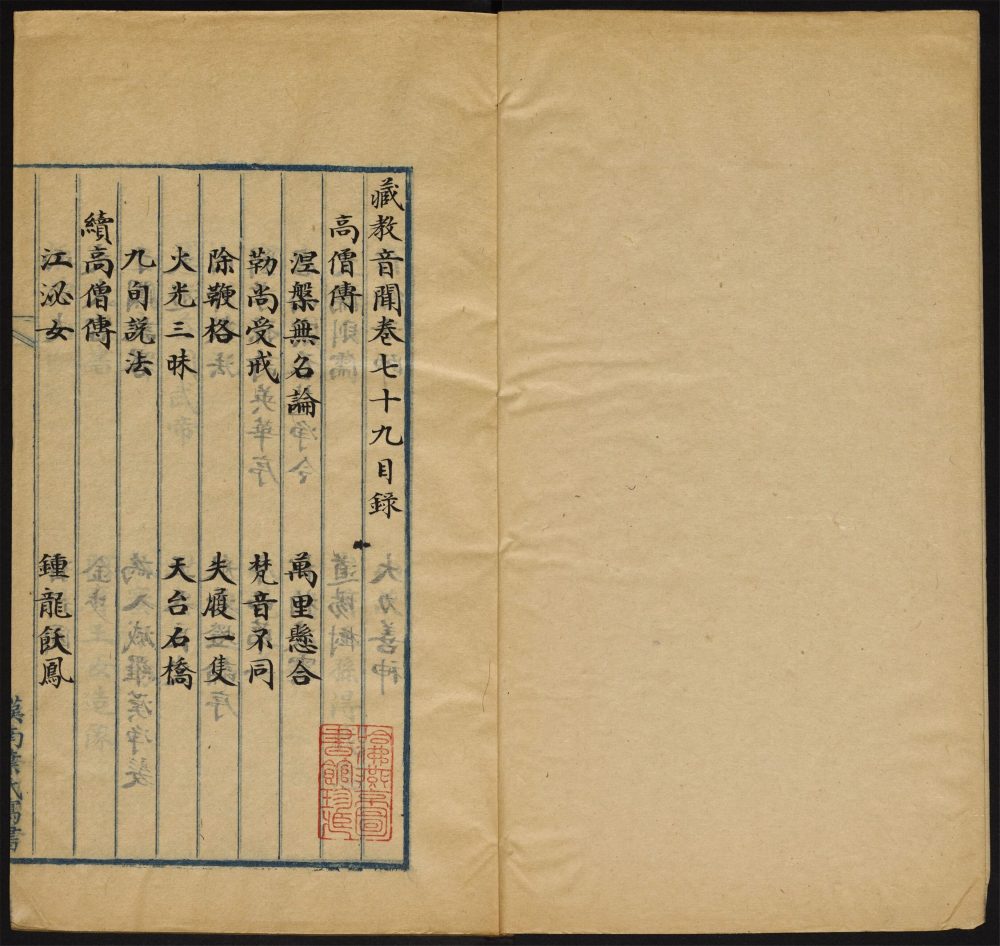 藏教音聞卷七十九目録
高僧傳
涅槃無名論 萬里懸合
勒尚受戒 梵音不同
除鞭格 失履一隻
火光三昧 天台石橋
九句説法
續高僧傳
江泌女 鍾龍飫鳳
哈佛燕京圖
書館珍藏